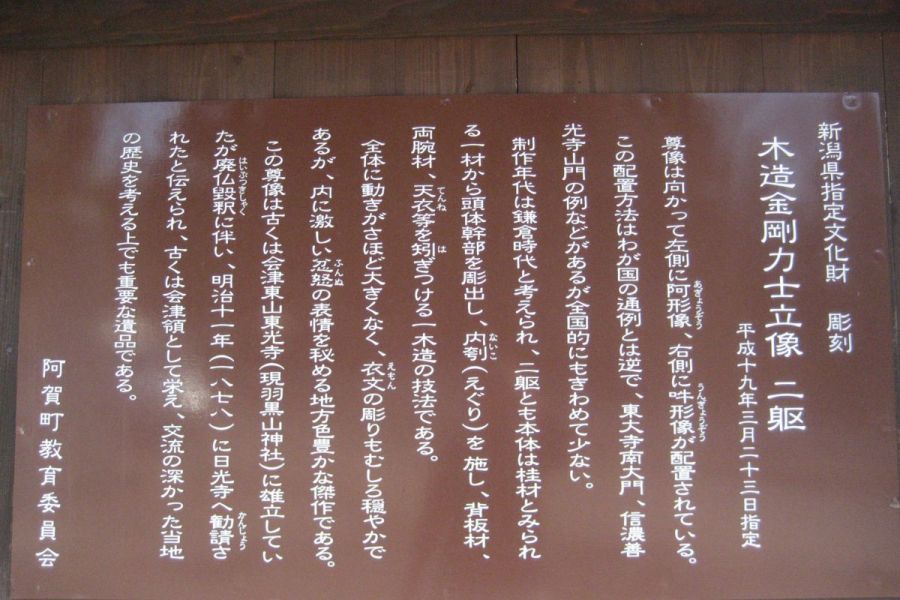 新潟県指定文化財　彫刻
木造金剛力士立像　二躯
平成十九年三月二十三日指定
尊像は向かって左側に阿形像、右側に吽形像が配置されている。
この配置方法はわが国の通例とは逆で、東大寺南大門、信濃善
光寺山門の例などがあるが全国的にもきわめて少ない。
制作年代は鎌倉時代と考えられ、二躯とも本体は桂材とみられ
る一材から頭体幹部を彫出し、内刳(えぐり)を施し、背板材、
両腕材、天衣等を矧ぎつける一木造の技法である。
全体に動きがさほど大きくなく、衣文の彫りもむしろ穏やかで
あるが、内に激しい忿怒の表情を秘める地方色豊かな傑作である。
この尊像は古くは会津東山東光寺(現羽黒山神社)に雄立してい
たが廃仏毀釈に伴い、明治十一年(一八七八)に日光寺へ勧請さ
れたと伝えられ、古くは会津領として栄え、交流の深かった当地
の歴史を考える上でも重要な遺品である。
阿賀町教育委員会